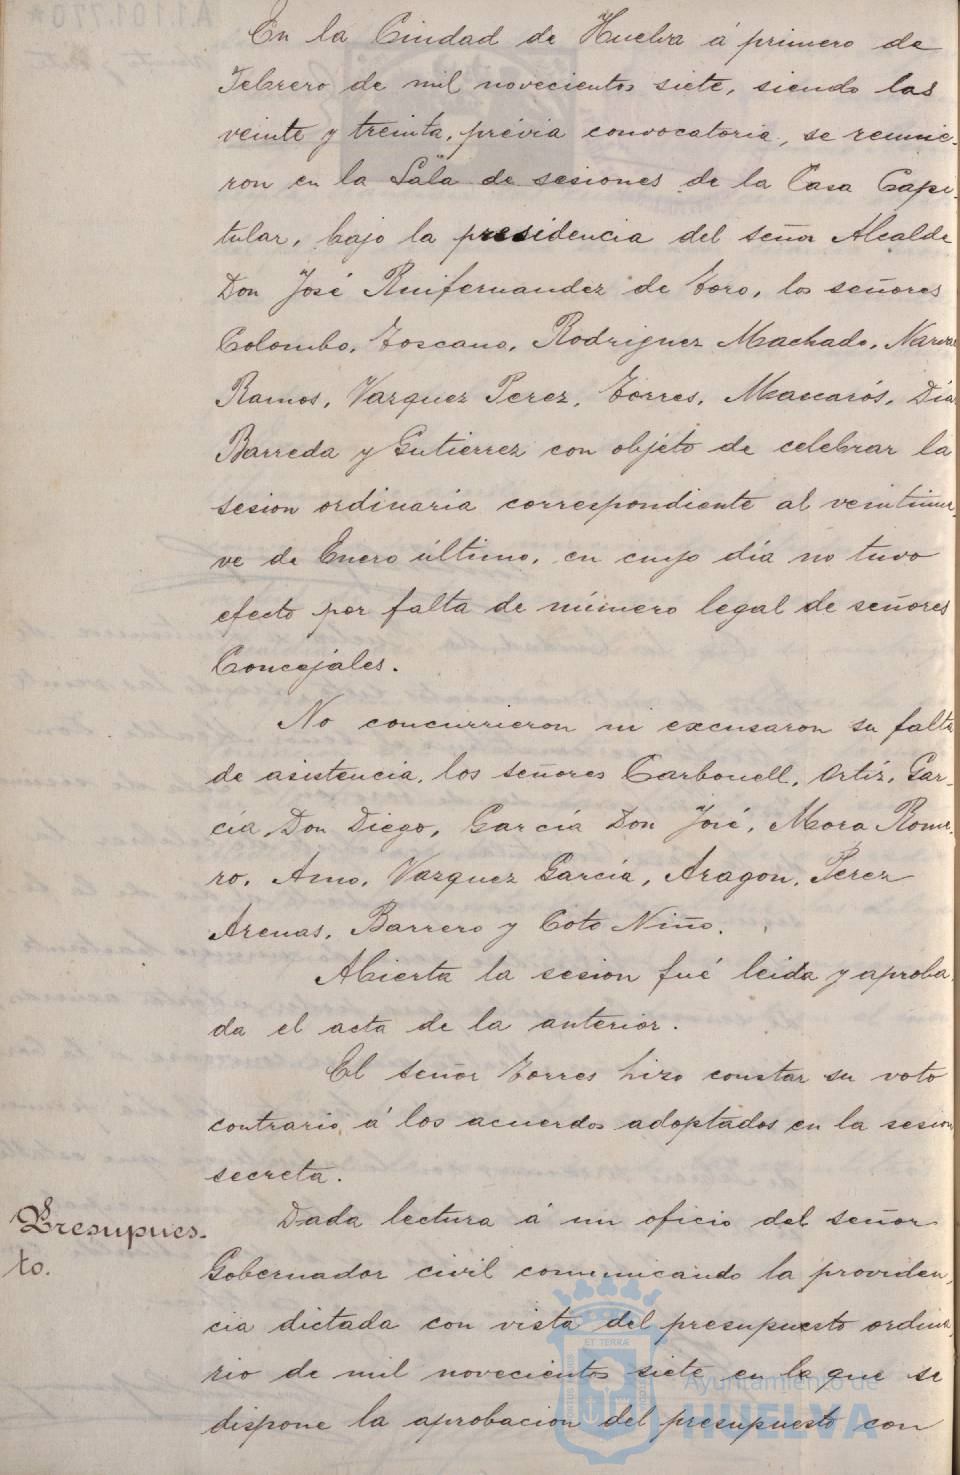 En la Ciudad de Huelva á primero de
Febrero de mil novecientos siete, siendo las
veinte y treinta, prévia convocatoria, se reunie-
ron en la Sala de sesiones de la Casa Capi-
tular, bajo la presidencia del señor Alcalde
Don José Ruifernandez de Toro, los señores
Colombo, Toscano, Rodriguez Machado, Narvaez
Ramos, Vazquez Perez, Torres, Mascarós, Diaz
Barreda y Gutierrez con objeto de celebrar la
sesion ordinaria correspondiente al veintinue-
ve de Enero último, en cuyo día no tuvo
efecto por falta de número legal de señores
Concejales.
No concurrieron ni excusaron su falta
de asistencia, los señores Carbonell, Ortiz, Gar-
cía Don Diego, García Don José, Mora Rome-
ro, Amo, Vazquez García, Aragon, Perez
Arenas, Barrero y Coto Niño.
Abierta la sesion fué leida y aproba-
da el acta de la anterior.
El señor Torres hizo constar su voto
contrario á los acuerdos adoptados en la sesion
secreta.
Presupues-
to.
Dada lectura á un oficio del señor
Gobernador civil comunicando la providen-
cia dictada con vista del presupuesto ordina-
rio de mil novecientos siete en la que se
dispone la aprobacion del presupuesto con
Ayuntamiento de
HUELVA